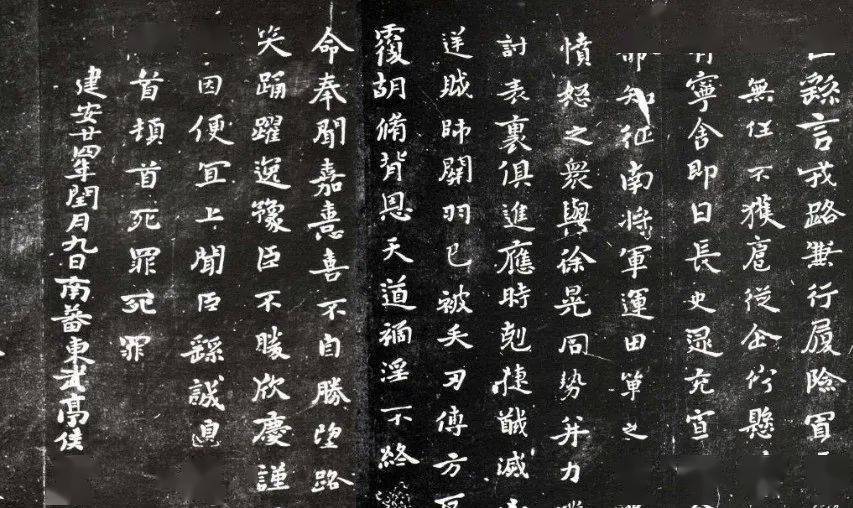 繇言戎路兼行履險冒
無任不獲扈從企佇懸
寧舍即日長史逯充宣
知征南將軍運田單之
憤怒之衆與徐晃同勢并力
討表裏俱進應時剋捷馘滅
送賊帥關羽已被矢刃傅方反
覆胡脩背恩天道禍淫不終
命奉聞嘉憙喜不自勝望路
笑踊躍逸豫臣不勝欣慶謹
因便宜上聞臣繇誠
首頓首死罪死罪
建安廿四年閏月九日南蕃東武亭侯